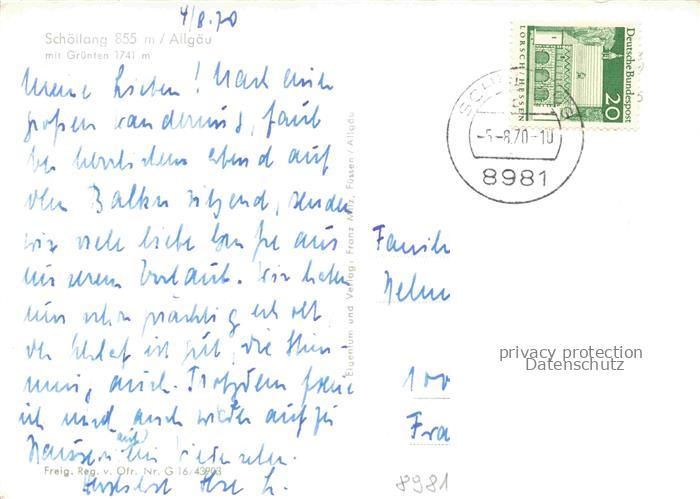 4/8.70
Schöllang 855 m / Allgäu
mit Grünten 1741 m
Meine Lieben! Nach einer
großen Wanderung, faul
bei herrlichem Abend auf
dem Balkon sitzend, senden
wir viele liebe Grüße aus
unserem Urlaub. Wir haben
uns schon prächtig erholt,
der Schlaf ist gut, die Stim-
mung auch. Trotzdem freue
ich mich auch wieder auf zu
Hause
auf ein Wiedersehen.
Herzlichst
Freig. Reg. v. Ofr. Nr. G 16/43903
Eigentum und Verlag: Franz Milz, Füssen/Allgäu
Deutsche Bundespost
20
LORSCH/HESSEN
-5.-8.70-10
8981
Famil
Helm
100
Fra
privacy protection
Datenschutz
8981